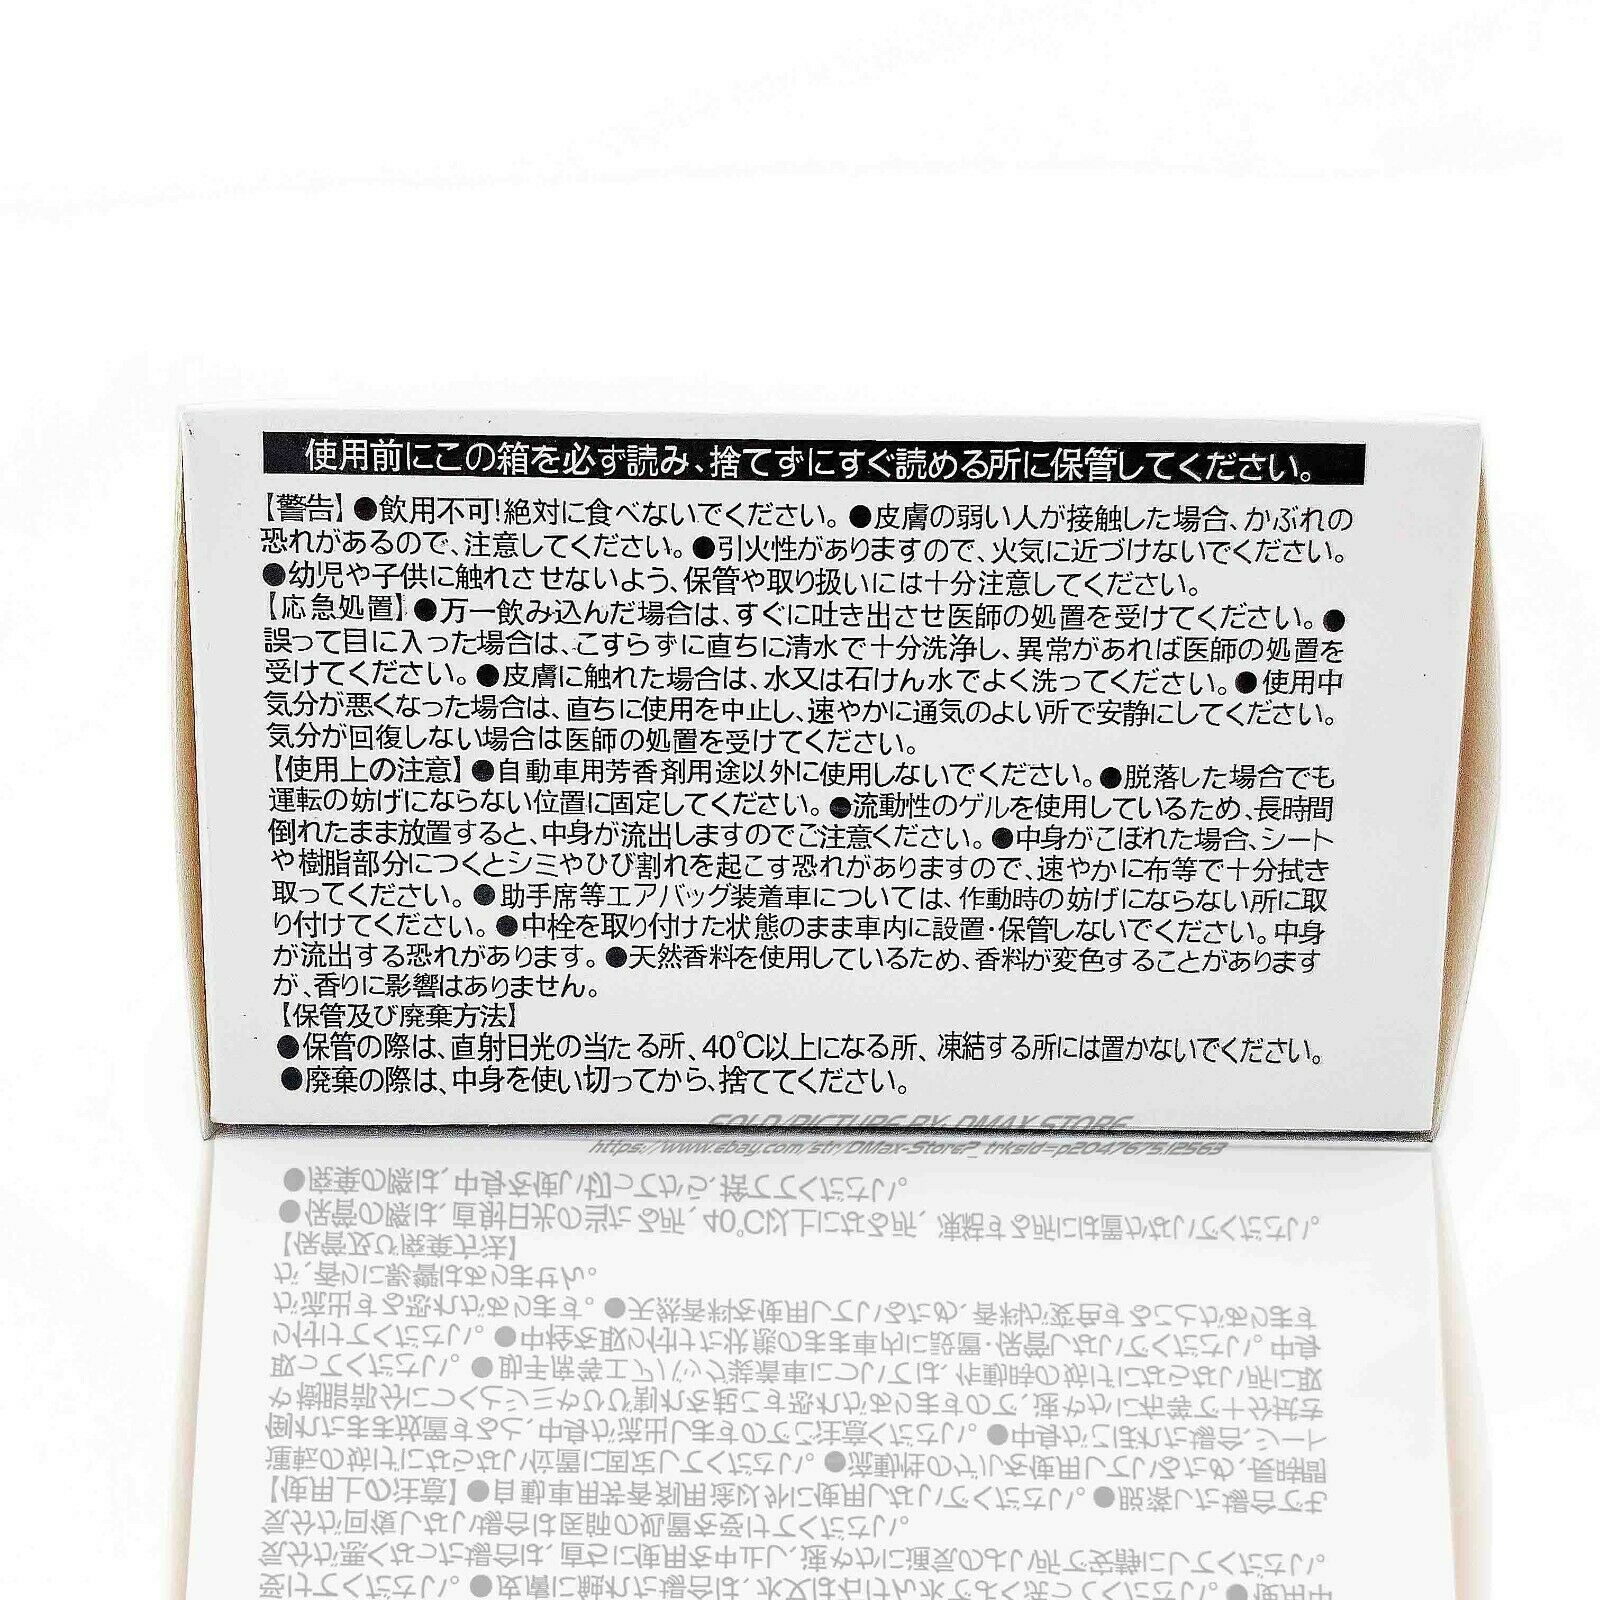 使用前にこの箱を必ず読み、捨てずにすぐ読める所に保管してください。
【警告】●飲用不可!絶対に食べないでください。●皮膚の弱い人が接触した場合、かぶれの
恐れがあるので、注意してください。●引火性がありますので、火気に近づけないでください。
●幼児や子供に触れさせないよう、保管や取り扱いには十分注意してください。
【応急処置】●万一飲み込んだ場合は、すぐに吐き出させ医師の処置を受けてください。●
誤って目に入った場合は、こすらずに直ちに清水で十分洗浄し、異常があれば医師の処置を
受けてください。●皮膚に触れた場合は、水又は石けん水でよく洗ってください。●使用中
気分が悪くなった場合は、直ちに使用を中止し、速やかに通気のよい所で安静にしてください。
気分が回復しない場合は医師の処置を受けてください。
【使用上の注意】●自動車用芳香剤用途以外に使用しないでください。●脱落した場合でも
運転の妨げにならない位置に固定してください。●流動性のゲルを使用しているため、長時間
倒れたまま放置すると、中身が流出しますのでご注意ください。●中身がこぼれた場合、シート
や樹脂部分につくとシミやひび割れを起こす恐れがありますので、速やかに布等で十分拭き
取ってください。●助手席等エアバッグ装着車については、作動時の妨げにならない所に取
り付けてください。●中栓を取り付けた状態のまま車内に設置・保管しないでください。中身
が流出する恐れがあります。●天然香料を使用しているため、香料が変色することがあります
が、香りに影響はありません。
【保管及び廃棄方法】
●保管の際は、直射日光の当たる所、40℃以上になる所、凍結する所には置かないでください。
●廃棄の際は、中身を使い切ってから、捨ててください。
SOLD/PICTURE BY DMAX STORE
https://www.ebay.com/str/DMax-Store?_trksid=p2047675.l2563